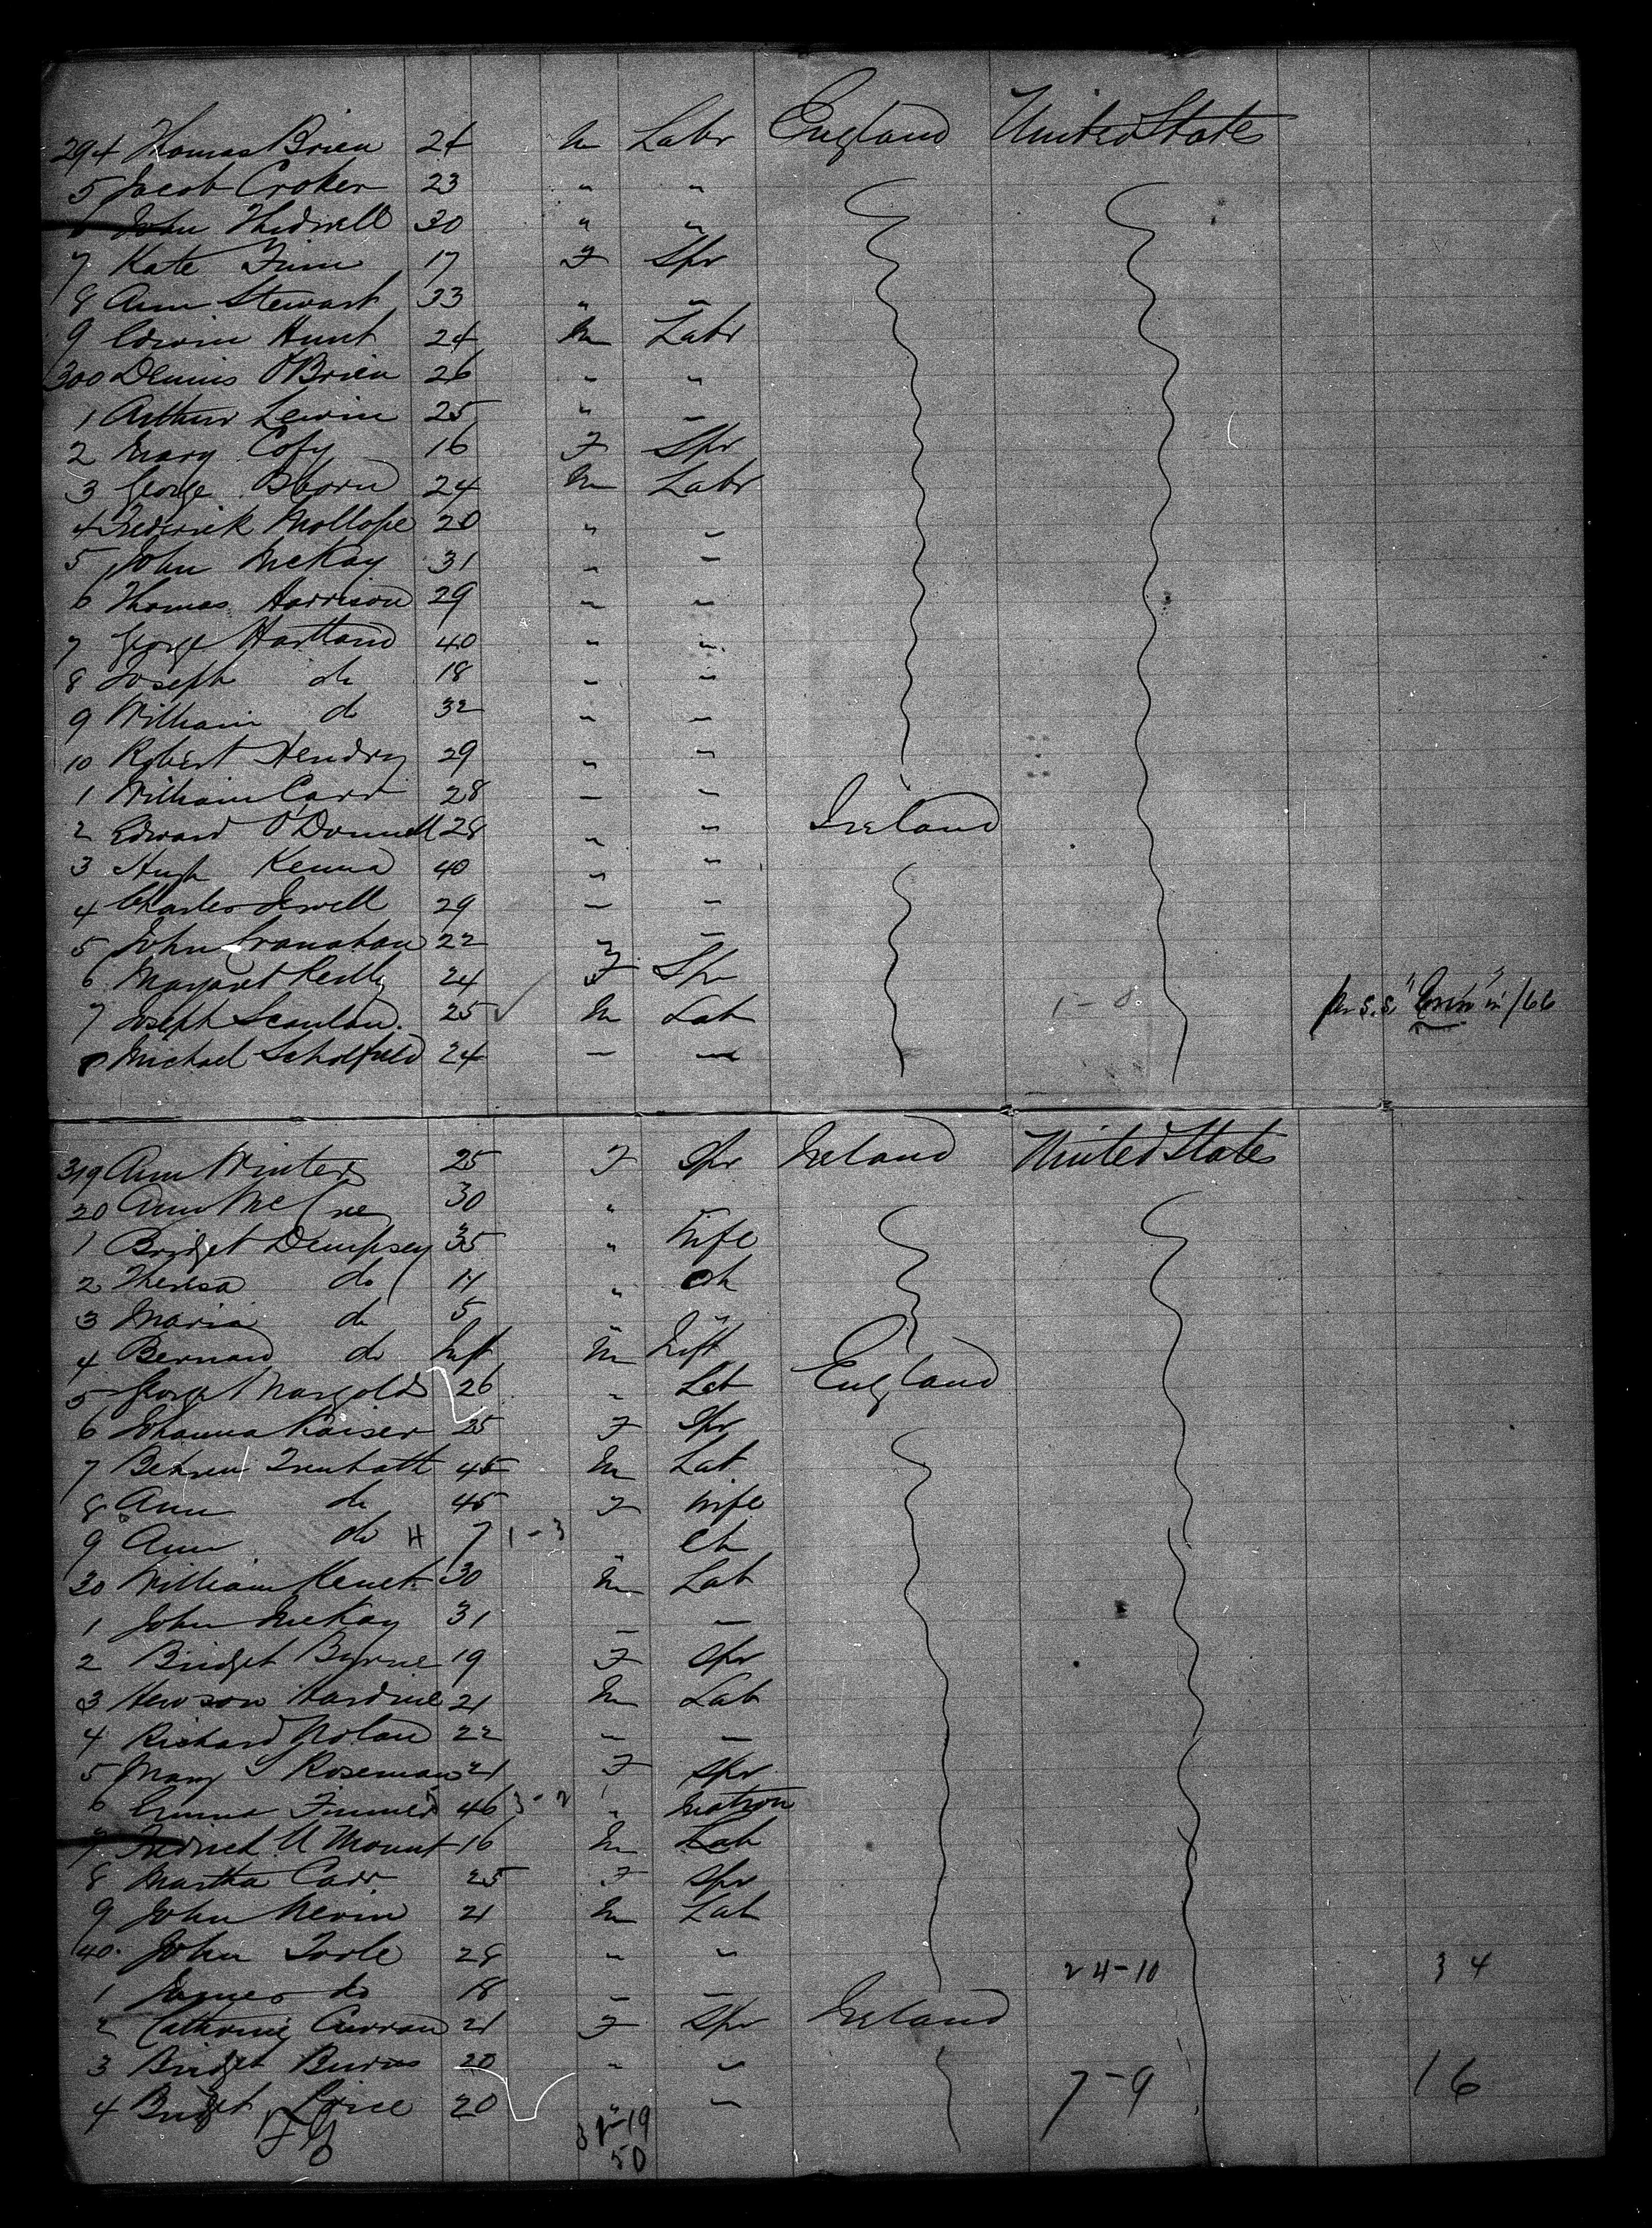 294 Thomas Brien 24 M Labr England United States
5 Jacob Croker 23 " "
6 John Thidwell 30 " "
7 Kate Finn 17 F Spr
8 Ann Stewart 33 " "
9 Edwin Hunt 24 M Labr
300 Dennis O'Brien 26 " "
1 Arthur Lewin 25 " "
2 Mary Cofy 16 F Spr
3 George 24 M Labr
4 Frederick Mollope 20 " "
5 John McKay 31 " "
6 Thomas Harrison 29 " "
7 George Hartland 40 " "
8 Joseph do 18 " "
9 William do 32 " "
10 Robert Hendry 29 " "
1 William Carr 28 " "
2 Edward O'Donnell 28 " " Ireland
3 Hugh Kenna 40 " "
4 Charles Jewell 29 " "
5 John 22 " "
6 Margaret Reilly 24 F Spr
7 Joseph Scanlan 25 M Lab 1-8 per s.s. "Erin" in /66
8 Michael Scholfield 24 " "
319 Ann Winters 25 F Spr Ireland United States
20 Ann 30 "
1 Bridget Dempsey 35 " Wife
2 Theresa do 14 " Ch
3 Maria do 5 " "
4 Bernard do Inft M Inft
5 George Margolds 26 " Lab England
6 Johanna Kaiser 25 F Spr
7 45 M Lab
8 Ann do 45 F Wife
9 Ann do H 7 1-3 " Ch
30 William 30 M Lab
1 John McKay 31 " "
2 Bridget Byrne 19 F Spr
3 Hewson Hardine 21 M Lab
4 Richard Nolan 22 " "
5 Mary S Roseman 21 F Spr
6 Emma 46 3-2 " Matron
7 Fredrick A Mount 16 M Lab
8 Martha Carr 25 F Spr
9 John Nevin 21 M Lab
40 John Toole 28 " " 24-10 34
1 James do 18 " "
2 Catherine Curran 21 F Spr Ireland
3 Bridget Burns 20 " " 7-9 16
4 Bridget 20 " "
50